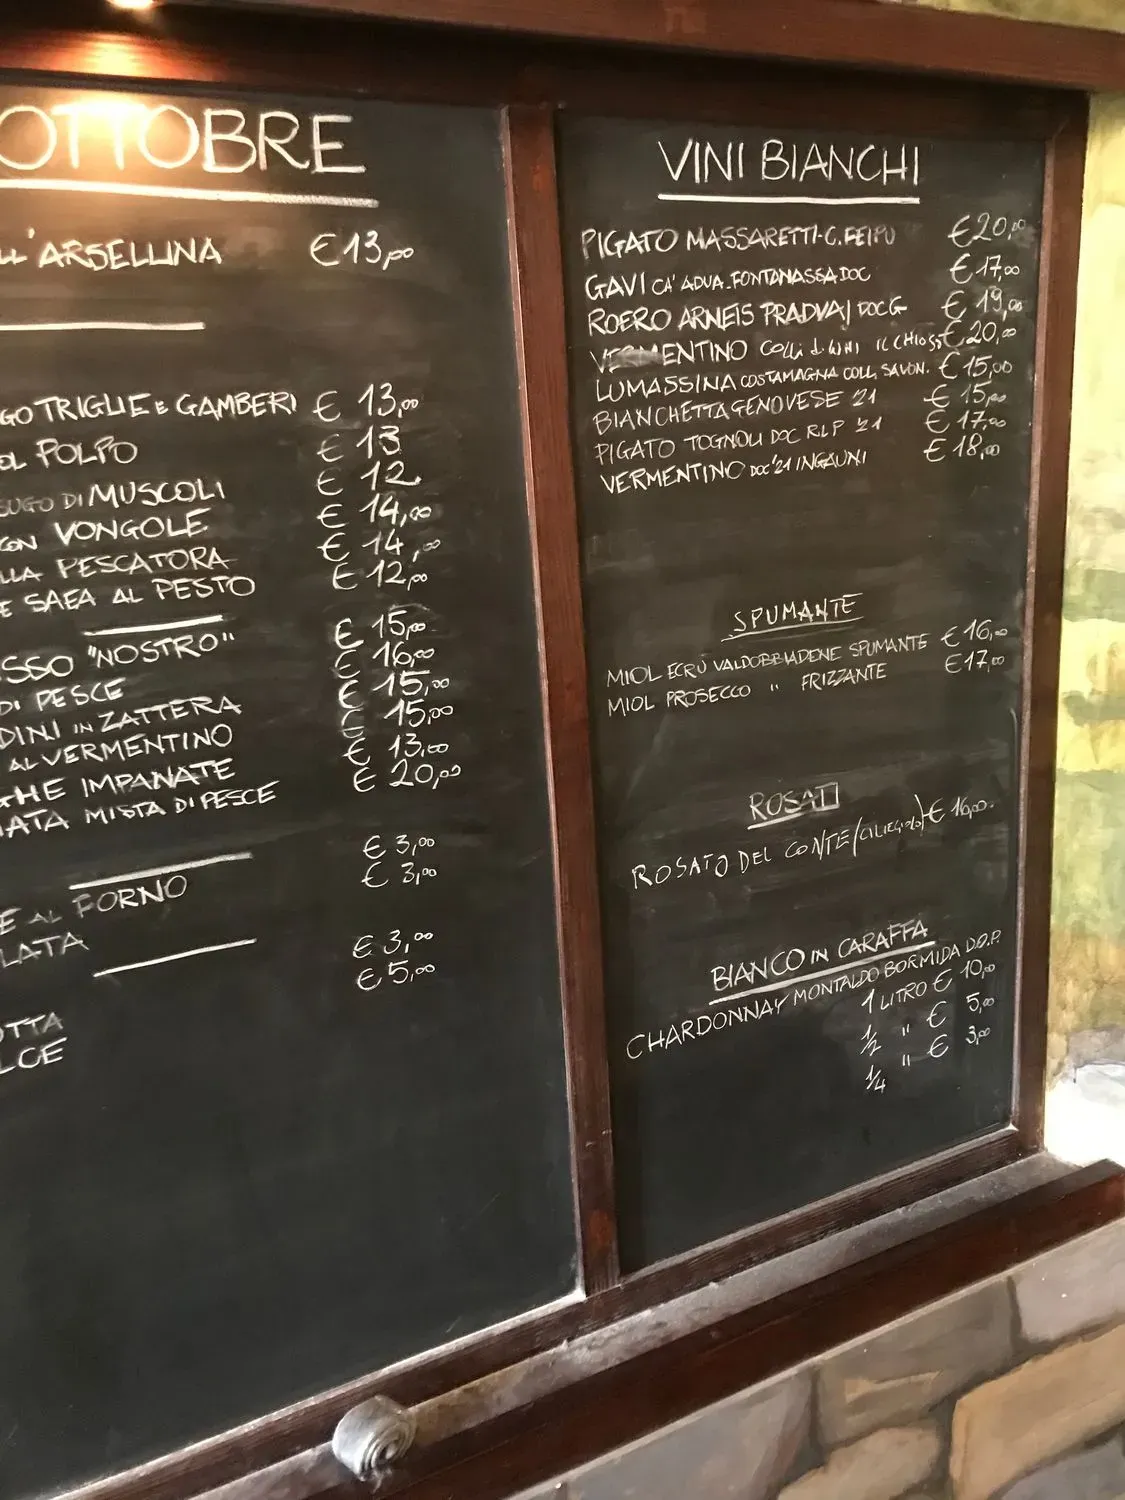 OTTOBRE
LL'ARSELLINA €13,00
GO TRIGLIE E GAMBERI € 13,00
OL POLPO € 13
SUGO DI MUSCOLI € 12
CON VONGOLE € 14,00
LLA PESCATORA € 14,00
E SAEA AL PESTO € 12,00
SSO "NOSTRO" € 15,00
DI PESCE € 16,00
DINI IN ZATTERA € 15,00
AL VERMENTINO € 15,00
GHE IMPANATE € 13,00
ATA MISTA DI PESCE € 20,00
E AL FORNO € 3,00
LATA € 3,00
OTTA € 3,00
LCE € 5,00
VINI BIANCHI
PIGATO MASSARETTI-C.FEIPU €20,00
GAVI CA' ADUA FONTANASSA DOC €17,00
ROERO ARNEIS PRADVAJ DOCG € 19,00
VERMENTINO COLLI di LUNI IL CHIOSO €20,00
LUMASSINA COSTAMAGNA COLL. SAVON. € 15,00
BIANCHETTA GENOVESE 21 € 15,00
PIGATO TOGNOLI DOC RLP 21 € 17,00
VERMENTINO DOC '21 INGAUNI € 18,00
SPUMANTE
MIOL ECRÙ VALDOBBIADENE SPUMANTE €16,00
MIOL PROSECCO " FRIZZANTE €17,00
ROSATO
ROSATO DEL CONTE (CILIEGIOLO) € 16,00
BIANCO IN CARAFFA
CHARDONNAY MONTALDO BORMIDA D.O.P.
1 LITRO € 10,00
1/2 " € 5,00
1/4 " € 3,00